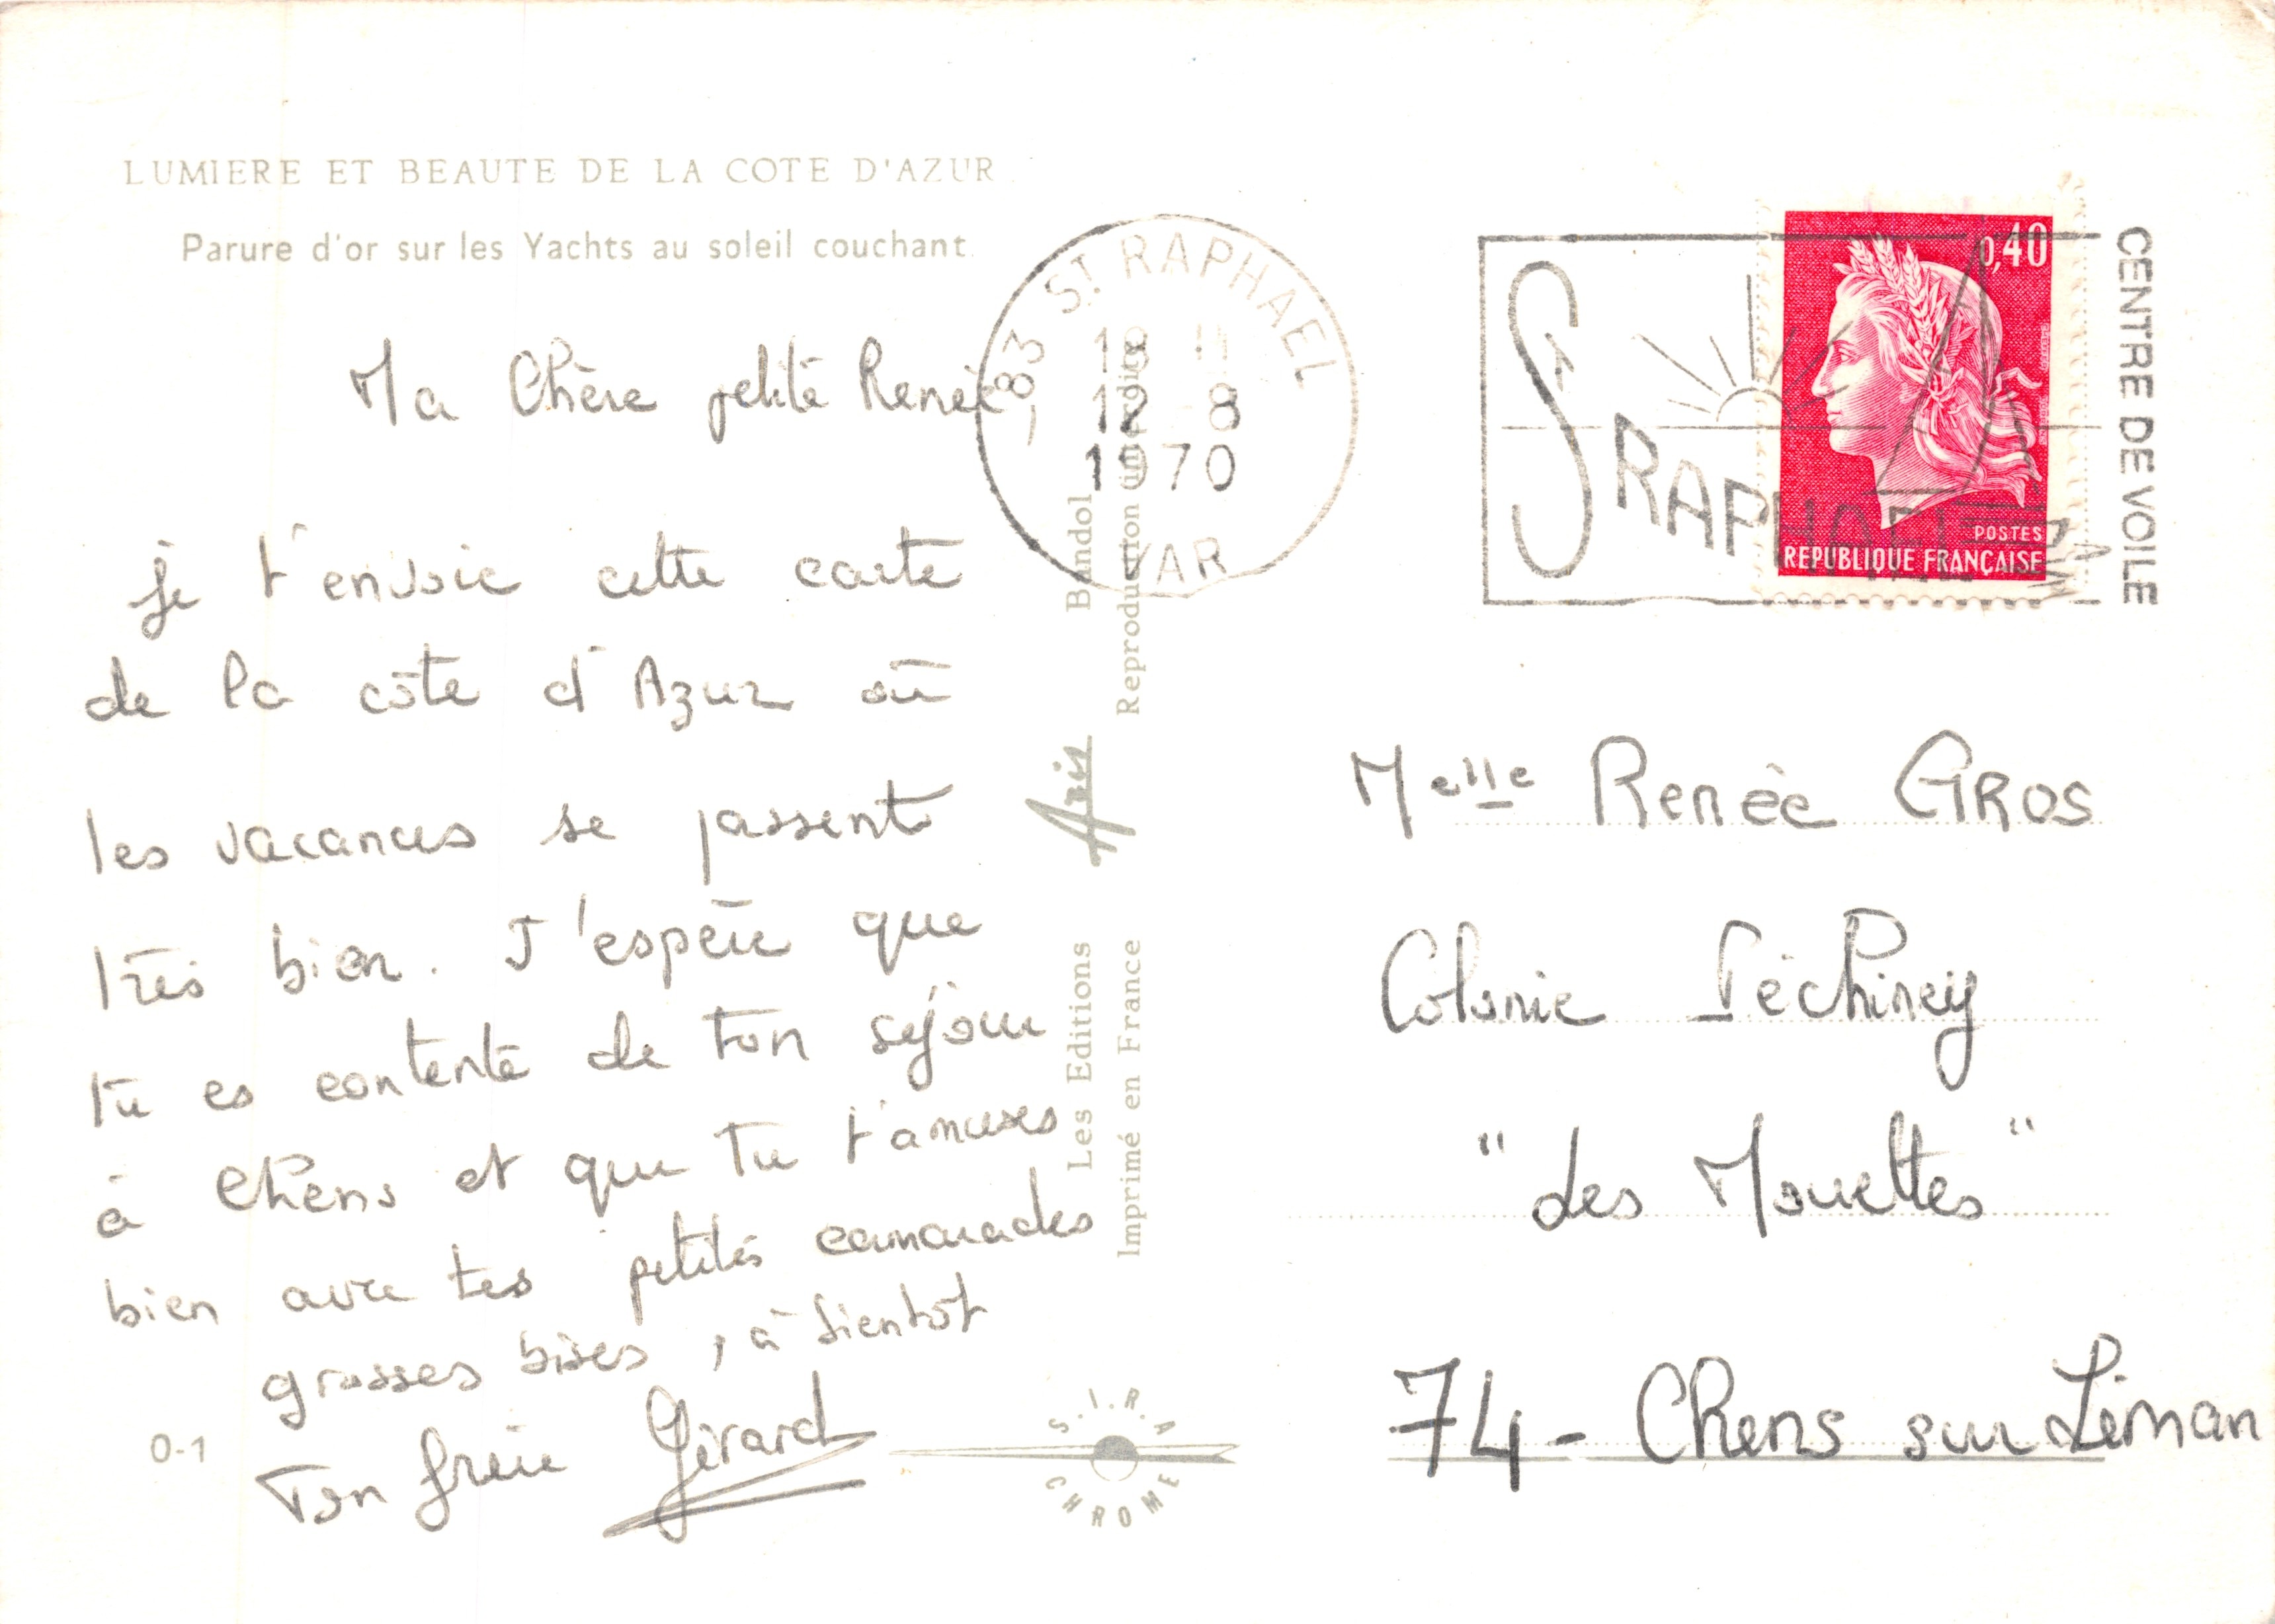 LUMIERE ET BEAUTE DE LA COTE D'AZUR
Parure d'or sur les Yachts au soleil couchant.
Ma Chère petite Renée
je t'envoie cette carte
de la côte d'Azur où
les vacances se passent
très bien. J'espère que
tu es contente de ton séjour
à Chens et que tu t'amuses
bien avec tes petites camarades
grosses bises, à bientôt
Ton frère Gérard
0-1
83 ST RAPHAEL
18 H
12 - 8
1970
VAR
Les Editions Aris Bandol
Imprimé en France Reproduction interdite
S.I.R.A
CHROME
ST RAPHAEL
CENTRE DE VOILE
0,40
POSTES
REPUBLIQUE FRANÇAISE
Melle Renée GROS
Colonie Péchiney
"Les Mouettes"
74 - Chens sur Léman